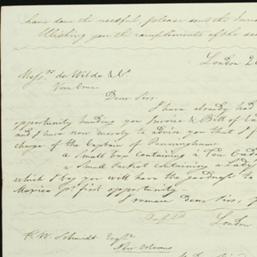 have done the needful please send the
Wishing you the compliments of the
London 2
Messrs de Wilde & Co
Vera Cruz
Dear Sirs
I have already had
opportunity handing you Invoice & Bill of
and I have now merely to advise you that I
charge of the Captain of
a Small Box containing a
a Small Packet containing a Lady
which I beg you will have the goodness to
Mexico pr first opportunity
I remain Dear Sirs
London
R. W. Schmidt Esqre
New Orleans
Dear Sir